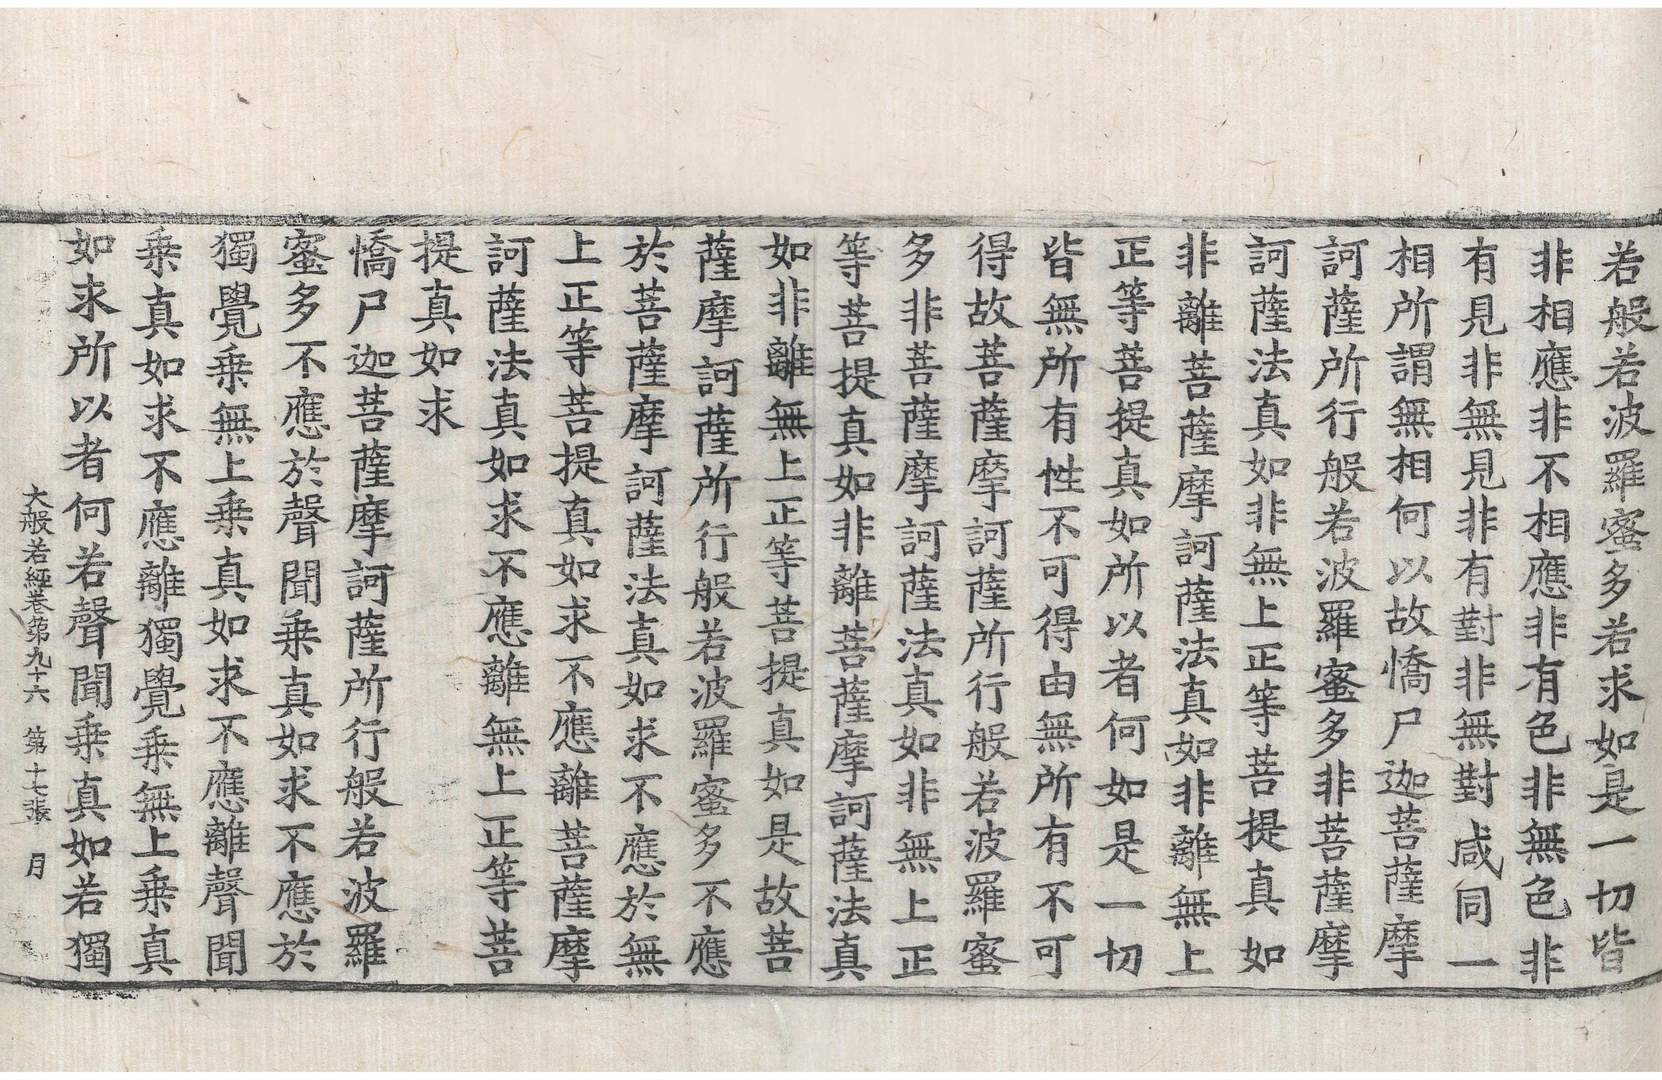 若般若波羅蜜多若求如是一切皆
非相應非不相應非有色非無色非
有見非無見非有對非無對咸同一
相所謂無相何以故憍尸迦菩薩摩
訶薩所行般若波羅蜜多非菩薩摩
訶薩法真如非無上正等菩提真如
非離菩薩摩訶薩法真如非離無上
正等菩提真如所以者何如是一切
皆無所有性不可得由無所有不可
得故菩薩摩訶薩所行般若波羅蜜
多非菩薩摩訶薩法真如非無上正
等菩提真如非離菩薩摩訶薩法真
如非離無上正等菩提真如是故菩
薩摩訶薩所行般若波羅蜜多不應
於菩薩摩訶薩法真如求不應於無
上正等菩提真如求不應離菩薩摩
訶薩法真如求不應離無上正等菩
提真如求
憍尸迦菩薩摩訶薩所行般若波羅
蜜多不應於聲聞乗真如求不應於
獨覺乗無上乗真如求不應離聲聞
乗真如求不應離獨覺乗無上乗真
如求所以者何若聲聞乗真如若獨
大般若經卷第九十六 第十七張 月